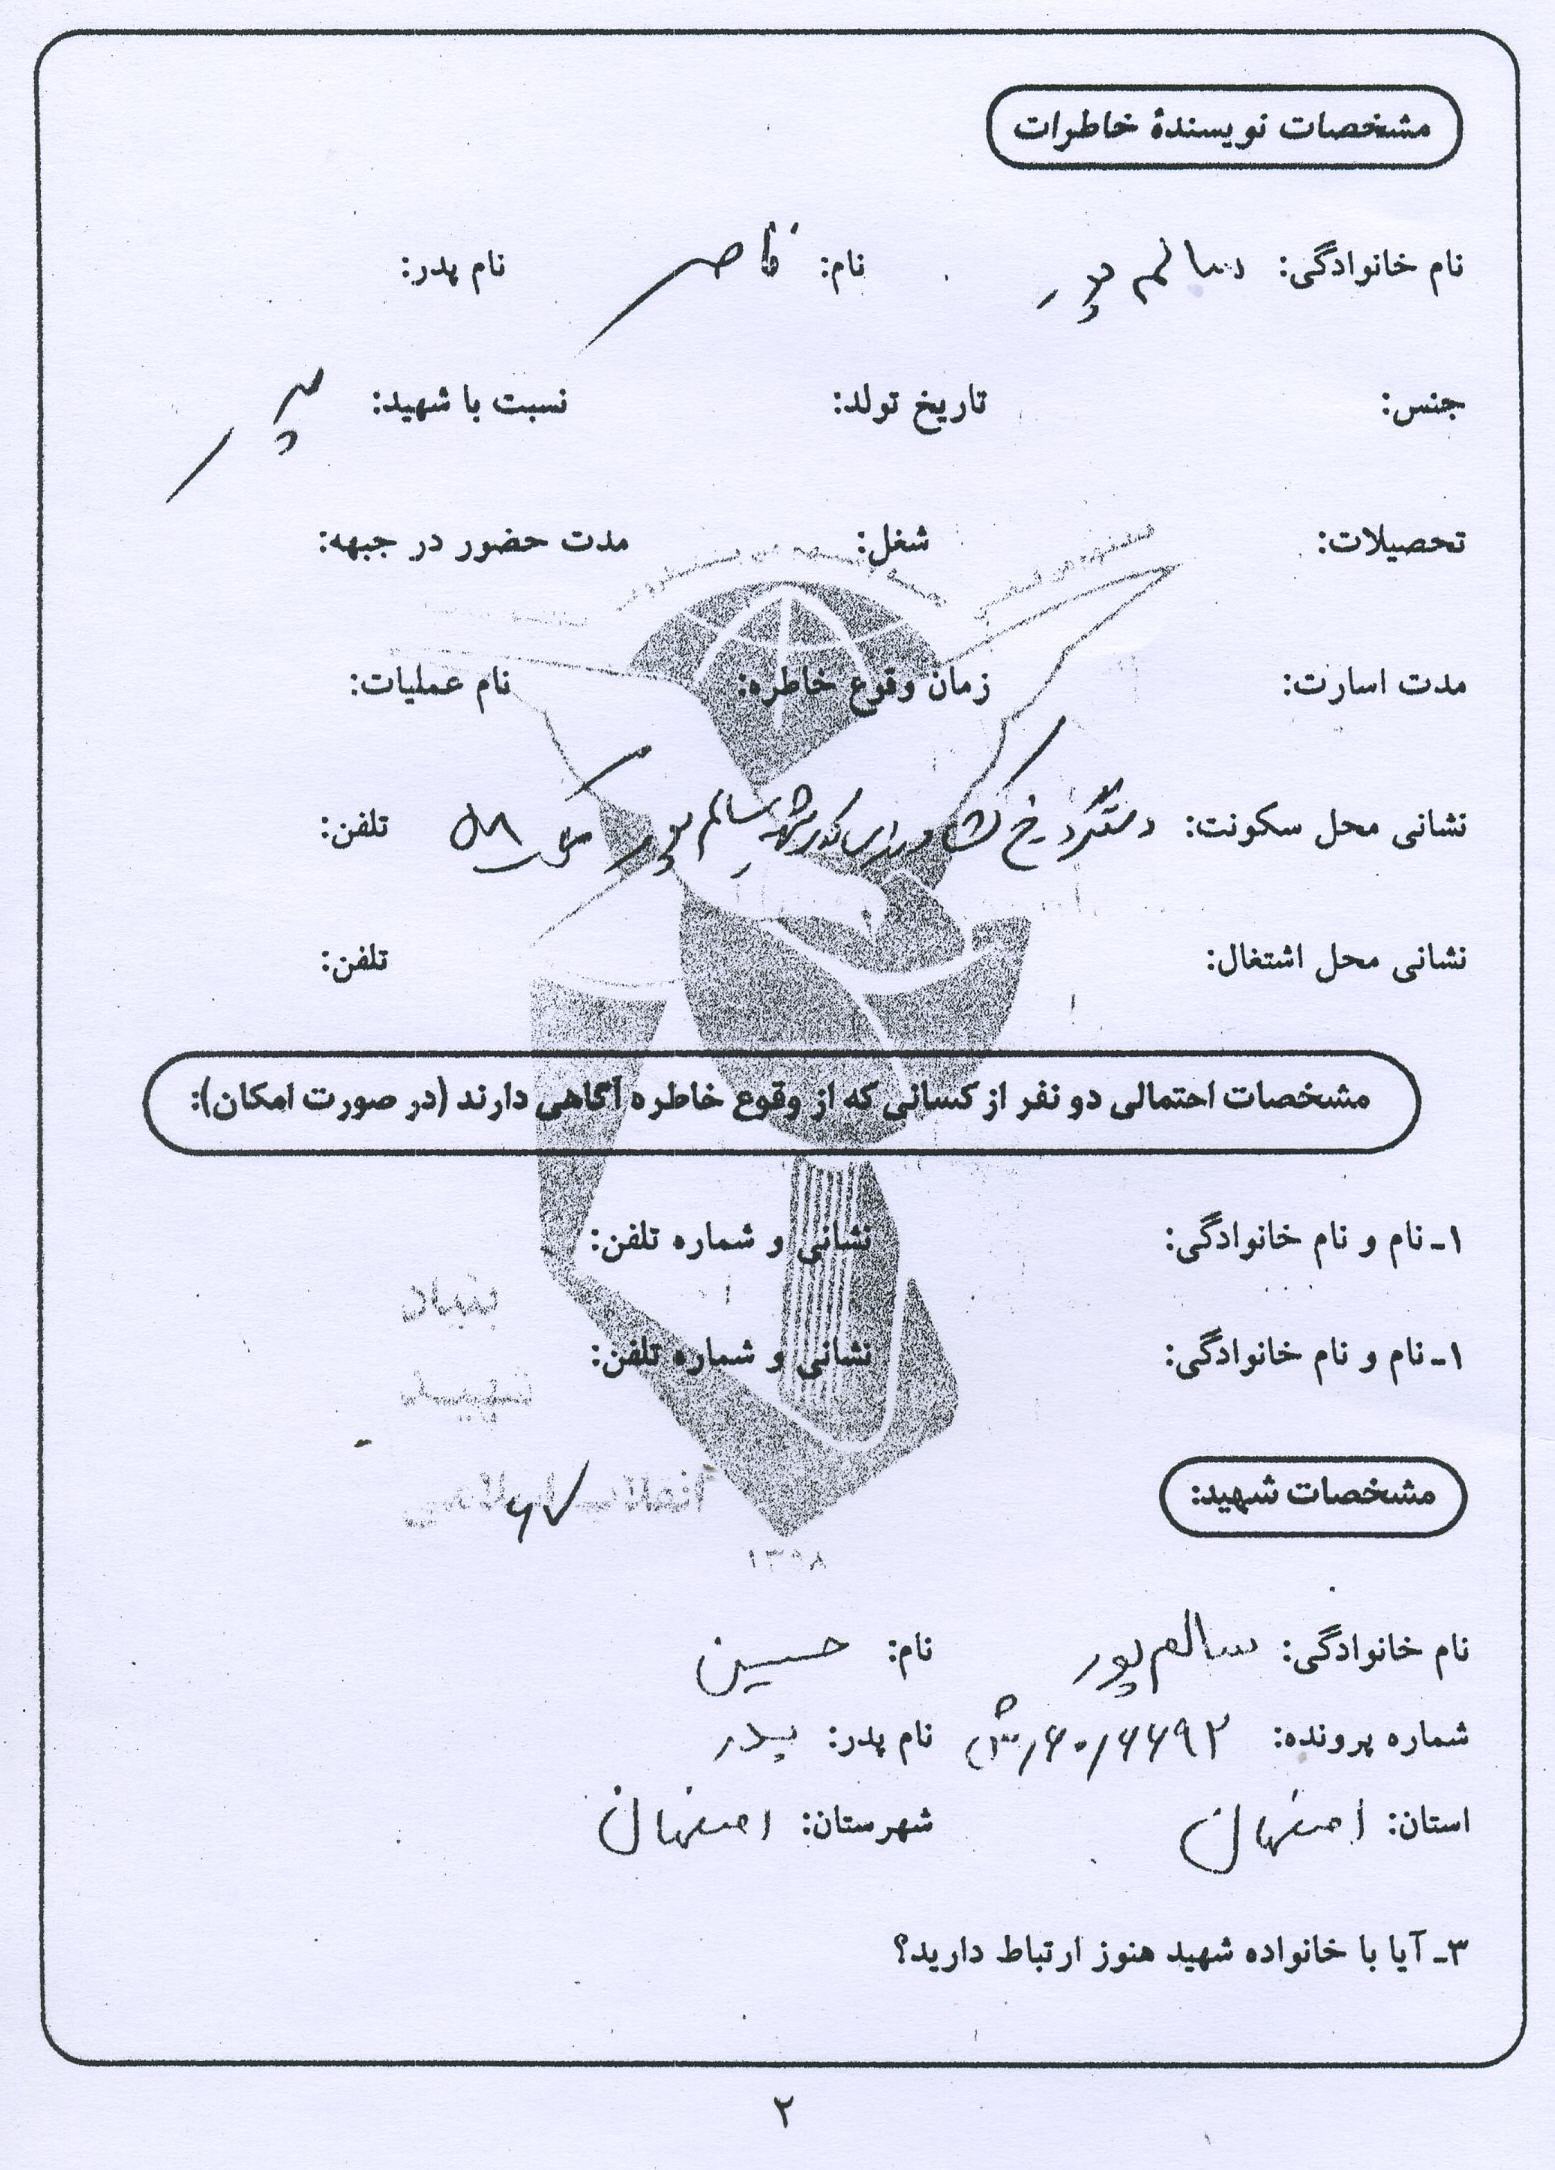 مشخصات نویسندهٔ خاطرات
نام خانوادگی: سالم پور نام: ناصر نام پدر:
جنس: تاریخ تولد: نسبت با شهید: پسر
تحصیلات: شغل: مدت حضور در جبهه:
مدت اسارت: زمان وقوع خاطره: نام عملیات:
نشانی محل سکونت: دستگرد خ کشاورزی کوی شهید سالم پور پلاک ۵۸ تلفن:
نشانی محل اشتغال: تلفن:
مشخصات احتمالی دو نفر از کسانی که از وقوع خاطره آگاهی دارند (در صورت امکان):
۱ـ نام و نام خانوادگی: نشانی و شماره تلفن:
۱ـ نام و نام خانوادگی: نشانی و شماره تلفن:
مشخصات شهید:
۱۳۹۸
نام خانوادگی: سالم پور نام: حسین
شماره پرونده: ۶۶۹۲/۶۰/ش نام پدر: یدر
استان: اصفهان شهرستان: اصفهان
۳ـ آیا با خانواده شهید هنوز ارتباط دارید؟
۲